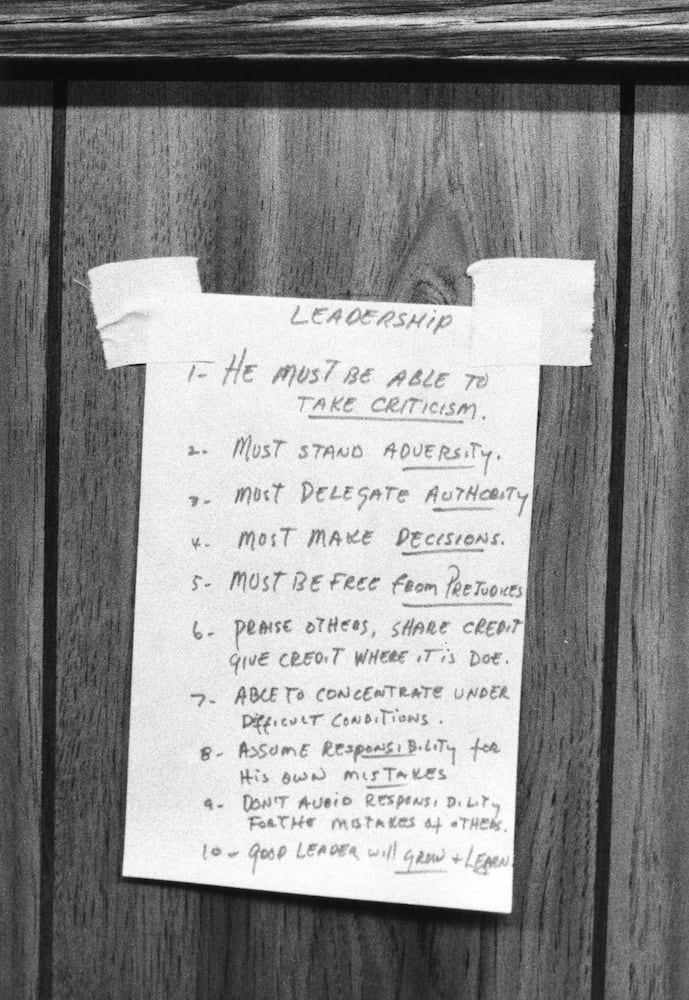 LEADERSHIP
1- HE MUST BE ABLE TO
TAKE CRITICISM.
2. MUST STAND ADVERSITY.
3. MUST DELEGATE AUTHORITY
4. MOST MAKE DECISIONS.
5- MUST BE FREE from PREJUDICES
6- PRAISE OTHERS, SHARE CREDIT
GIVE CREDIT WHERE IT is DOE.
7- ABLE TO CONCENTRATE UNDER
Difficult CONDITIONS.
8- ASSUME RESPONSIBILITY for
His OWN MISTAKES
9- DON'T AVOID RESPONSIBILITY
FOR THE MISTAKES of OTHERS.
10- GOOD LEADER will GROW + LEARN